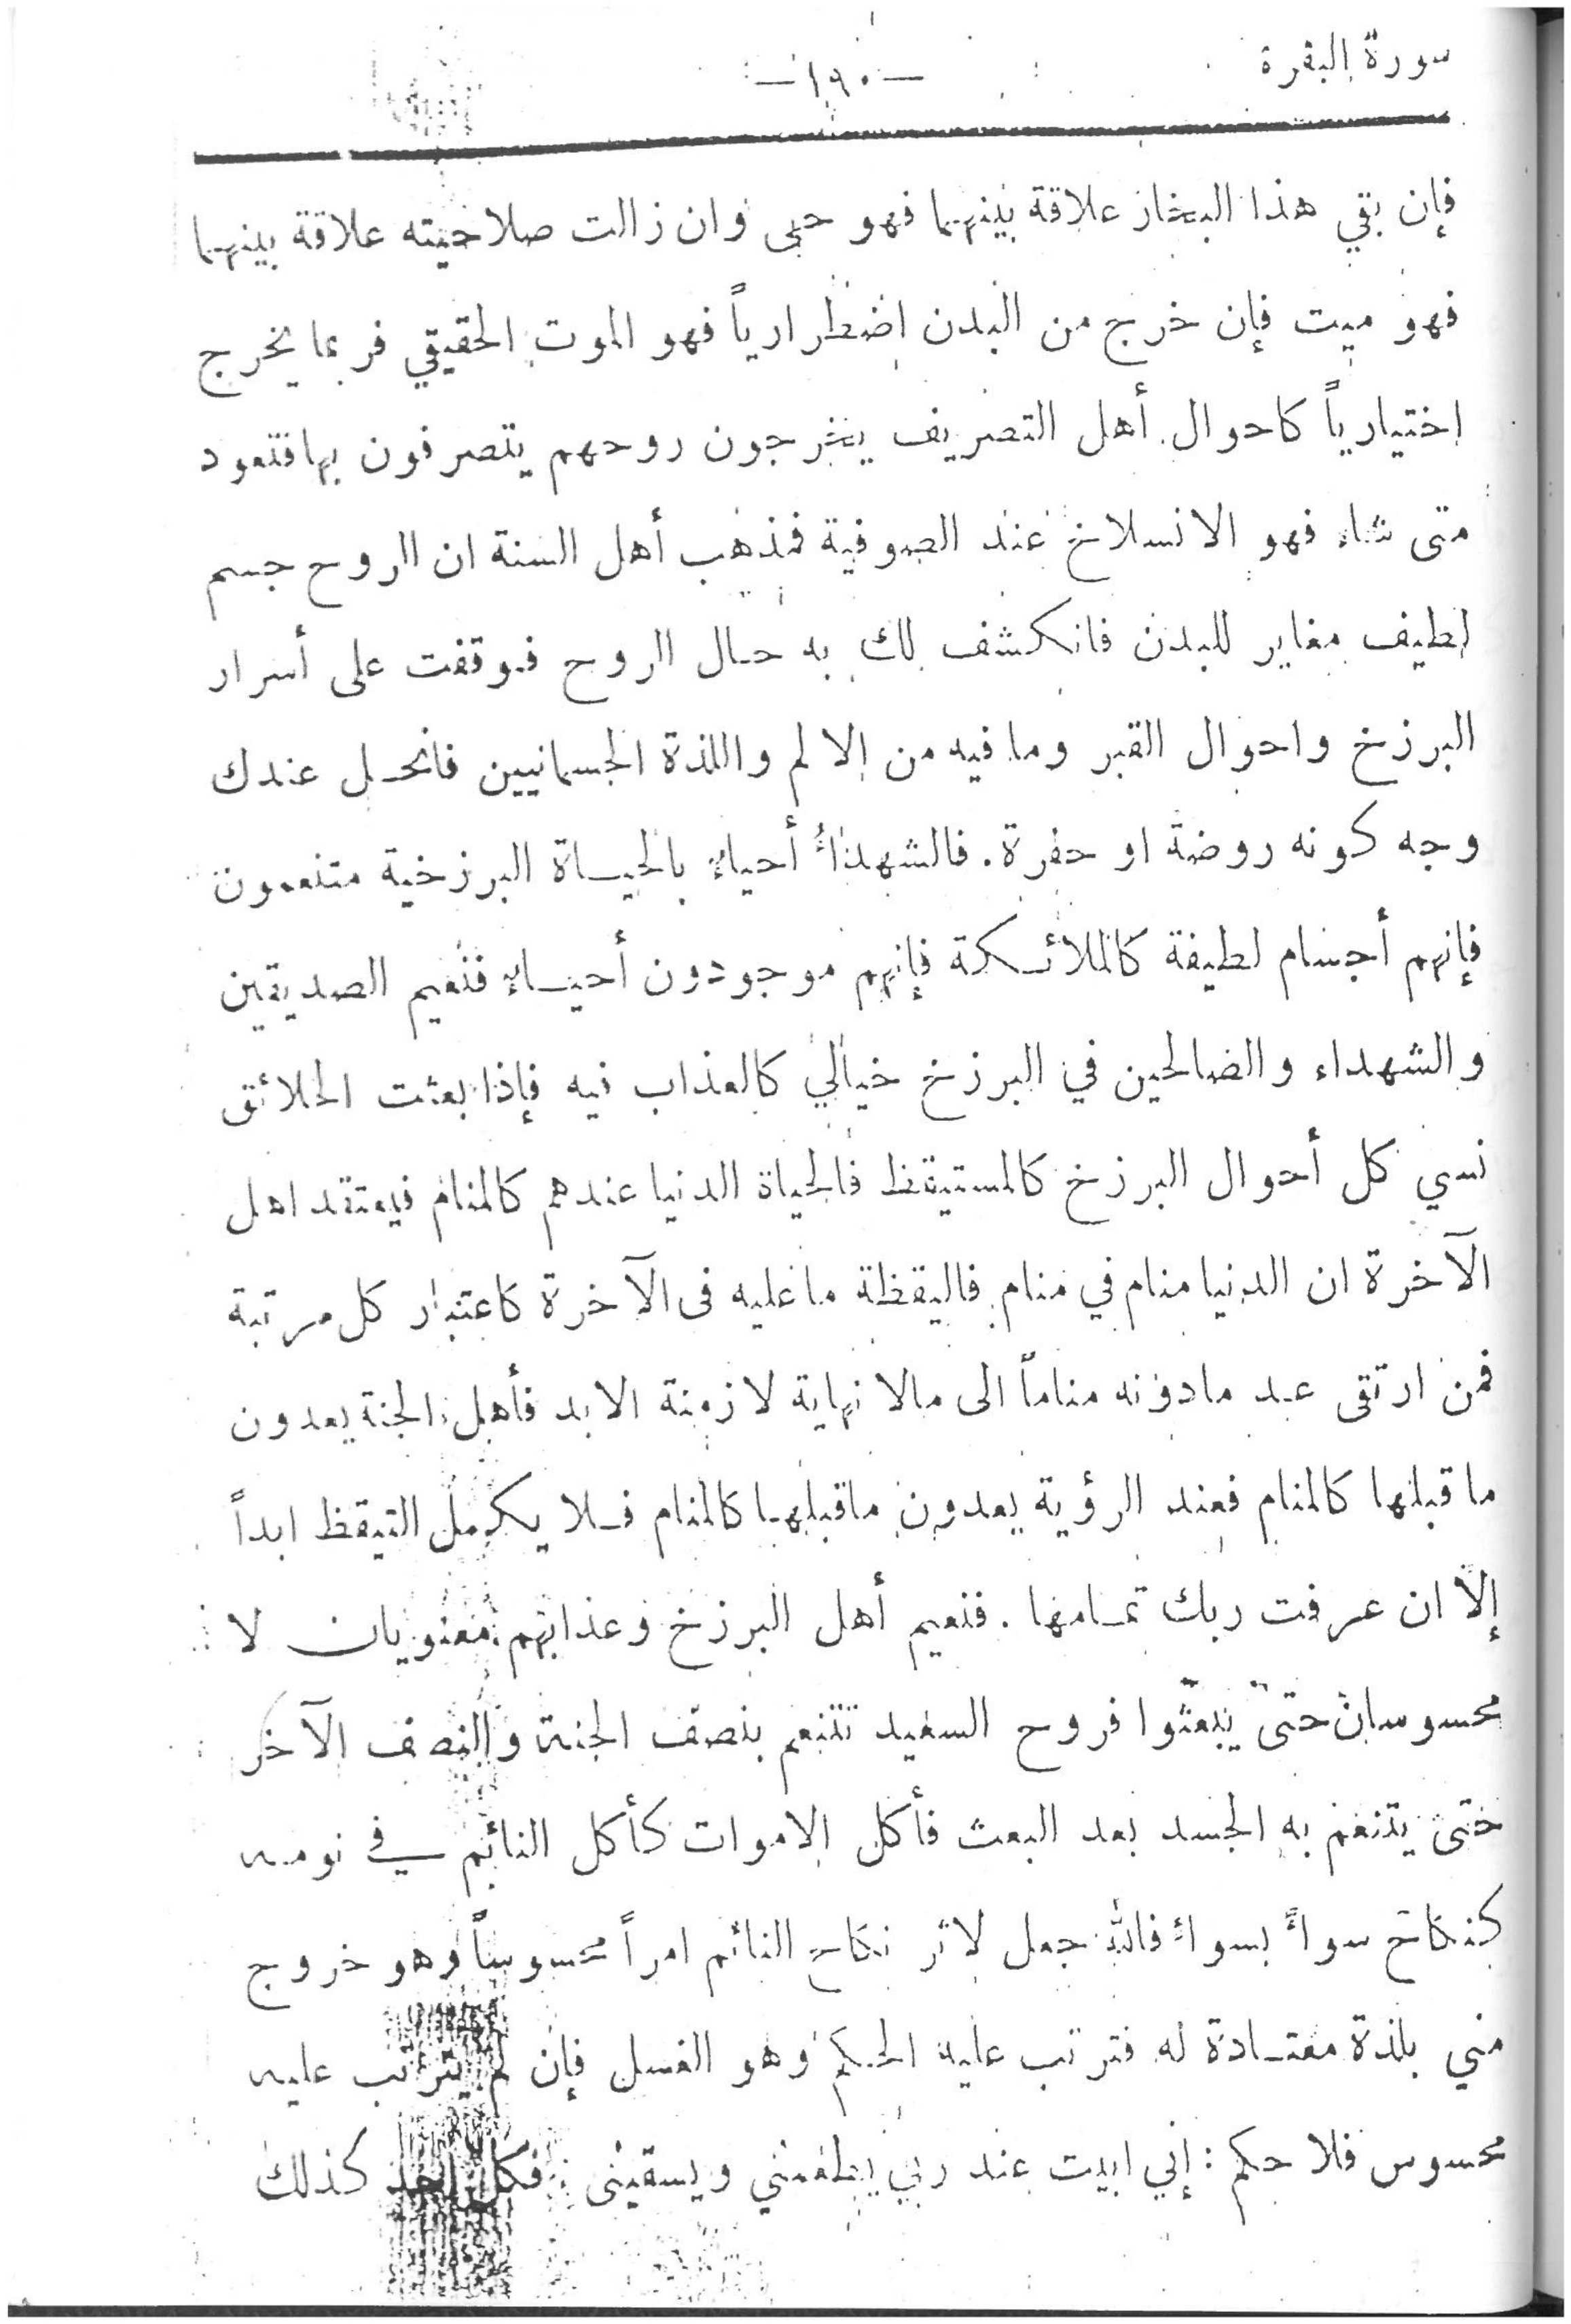 سورة البقرة
—١٩٠—
فإن بقي هذا البخار علاقة بينهما فهو حي وان زالت صلاحيته علاقة بينهما
فهو ميت فإن خرج من البدن اضطرارياً فهو الموت الحقيقي فربما يخرج
اختيارياً كاحوال أهل التصريف يخرجون روحهم يتصرفون بها فتعود
متى شاء فهو الانسلاخ عند الصوفية فمذهب أهل السنة ان الروح جسم
لطيف مغاير للبدن فانكشف لك به حال الروح فوقفت على أسرار
البرزخ واحوال القبر وما فيه من الالم واللذة الجسمانيين فانحل عندك
وجه كونه روضة او حفرة. فالشهداءُ أحياء بالحياة البرزخية متنعمون
فإنهم أجسام لطيفة كالملائكة فإنهم موجودون أحياء فنعيم الصديقين
والشهداء والصالحين في البرزخ خيالي كالعذاب فيه فإذا بعثت الخلائق
نسي كل أحوال البرزخ كالمستيقظ فالحياة الدنيا عندهم كالمنام فيعتقد اهل
الآخرة ان الدنيا منام في منام فاليقظة ما عليه فى الآخرة كاعتبار كل مرتبة
فمن ارتقى عد ما دونه مناماً الى مالا نهاية لازمنة الابد فأهل الجنة يعدون
ما قبلها كالمنام فعند الرؤية يعدون ما قبلها كالمنام فلا يكمل التيقظ ابداً
إلا ان عرفت ربك تمامها. فنعيم أهل البرزخ وعذابهم معنويان لا
محسوسان حتى يبعثوا فروح السعيد تتنعم بنصف الجنة والنصف الآخر
حتى يتنعم به الجسد بعد البعث فأكل الاموات كأكل النائم في نومه
كنكاح سواءً بسواءٍ فالله جعل لاثر نكاح النائم امراً محسوساً وهو خروج
مني بلذة معتادة له فترتب عليه الحكم وهو الغسل فإن لم يترتب عليه
محسوس فلا حكم: إني ابيت عند ربي يطعمني ويسقينى: فكل احد كذلك